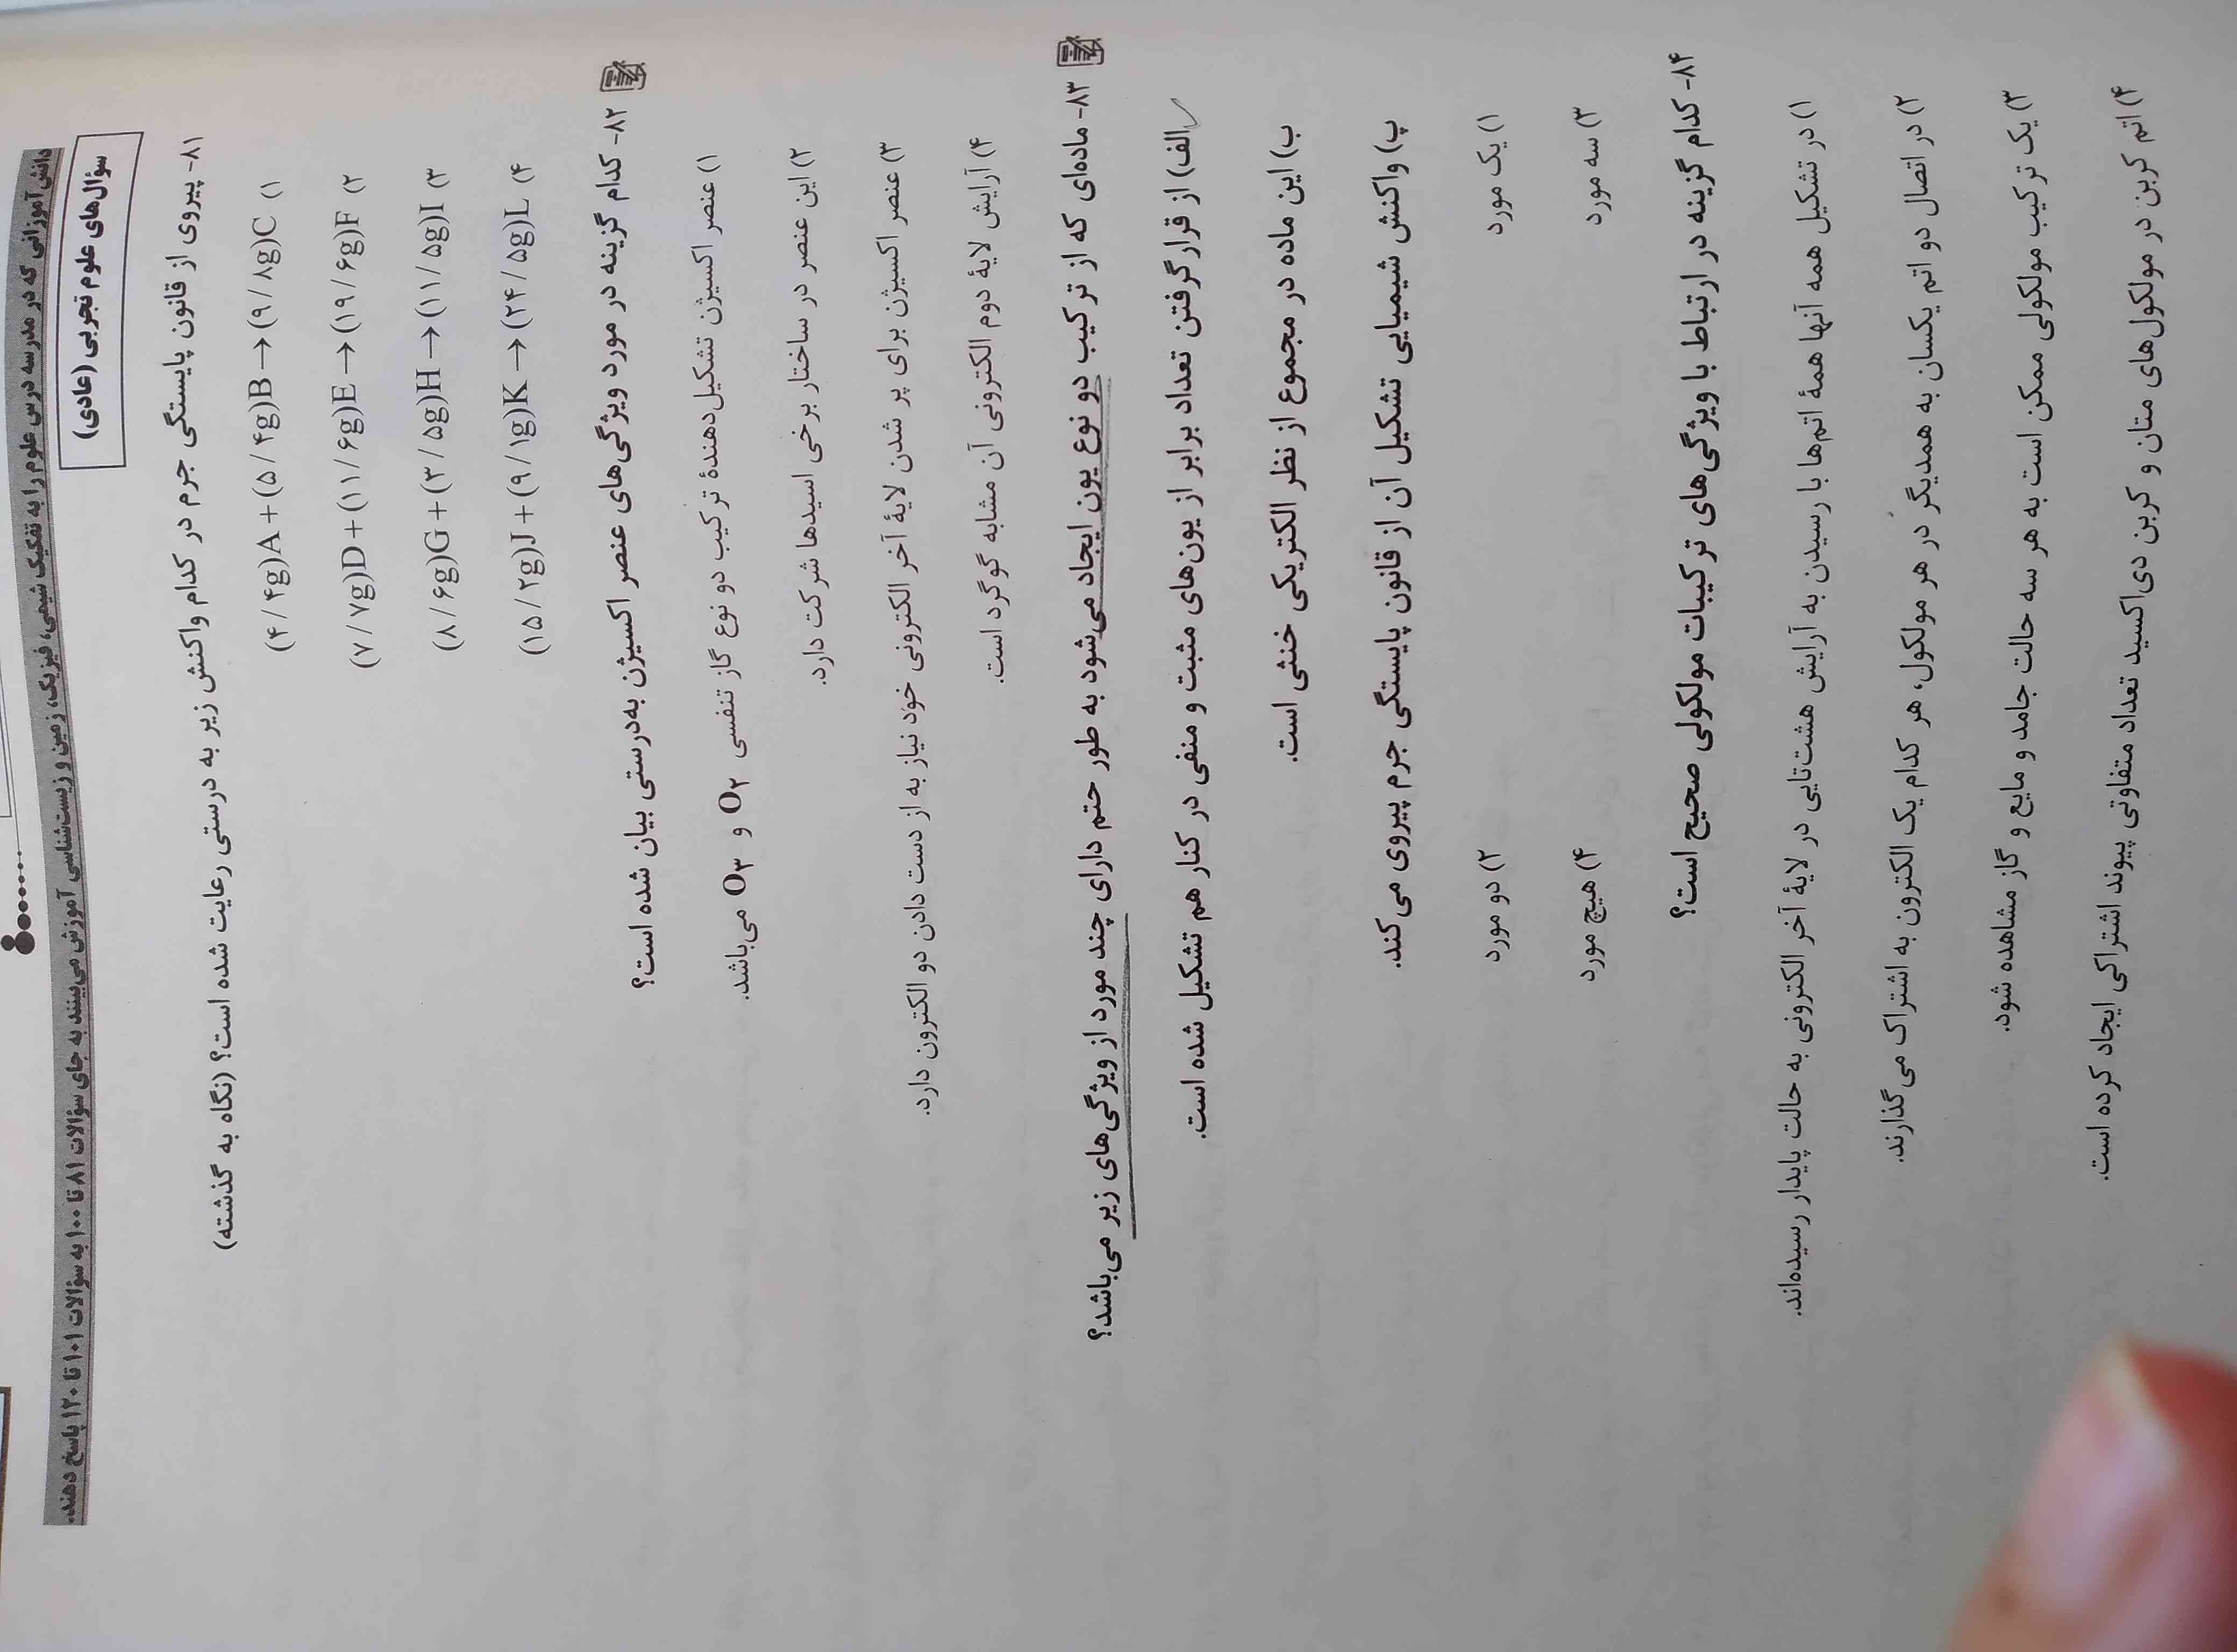 دانش‌آموزانی که در مدرسه درس علوم را به تفکیک شیمی، فیزیک، زمین و زیست‌شناسی آموزش می‌بینند به جای سؤالات ۸۱ تا ۱۰۰ به سؤالات ۱۰۱ تا ۱۲۰ پاسخ دهند.
سؤال‌های علوم تجربی (عادی)
۸۱- پیروی از قانون پایستگی جرم در کدام واکنش زیر به درستی رعایت شده است؟ (نگاه به گذشته)
۱) (۴/۴g)A + (۵/۴g)B → (۹/۸g)C
۲) (۷/۷g)D + (۱۱/۶g)E → (۱۹/۶g)F
۳) (۸/۶g)G + (۳/۵g)H → (۱۱/۵g)I
۴) (۱۵/۲g)J + (۹/۱g)K → (۲۴/۵g)L
۸۲- کدام گزینه در مورد ویژگی‌های عنصر اکسیژن به‌درستی بیان شده است؟
۱) عنصر اکسیژن تشکیل‌دهندهٔ ترکیب دو نوع گاز تنفسی O۲ و O۳ می‌باشد.
۲) این عنصر در ساختار برخی اسیدها شرکت دارد.
۳) عنصر اکسیژن برای پر شدن لایهٔ آخر الکترونی خود نیاز به از دست دادن دو الکترون دارد.
۴) آرایش لایهٔ دوم الکترونی آن مشابه گوگرد است.
۸۳- ماده‌ای که از ترکیب دو نوع یون ایجاد می‌شود به طور حتم دارای چند مورد از ویژگی‌های زیر می‌باشد؟
الف) از قرار گرفتن تعداد برابر از یون‌های مثبت و منفی در کنار هم تشکیل شده است.
ب) این ماده در مجموع از نظر الکتریکی خنثی است.
پ) واکنش شیمیایی تشکیل آن از قانون پایستگی جرم پیروی می‌کند.
۱) یک مورد ۲) دو مورد
۳) سه مورد ۴) هیچ مورد
۸۴- کدام گزینه در ارتباط با ویژگی‌های ترکیبات مولکولی صحیح است؟
۱) در تشکیل همه آنها همهٔ اتم‌ها با رسیدن به آرایش هشت‌تایی در لایهٔ آخر الکترونی به حالت پایدار رسیده‌اند.
۲) در اتصال دو اتم یکسان به همدیگر در هر مولکول، هر کدام یک الکترون به اشتراک می‌گذارند.
۳) یک ترکیب مولکولی ممکن است به هر سه حالت جامد و مایع و گاز مشاهده شود.
۴) اتم کربن در مولکول‌های متان و کربن دی‌اکسید تعداد متفاوتی پیوند اشتراکی ایجاد کرده است.